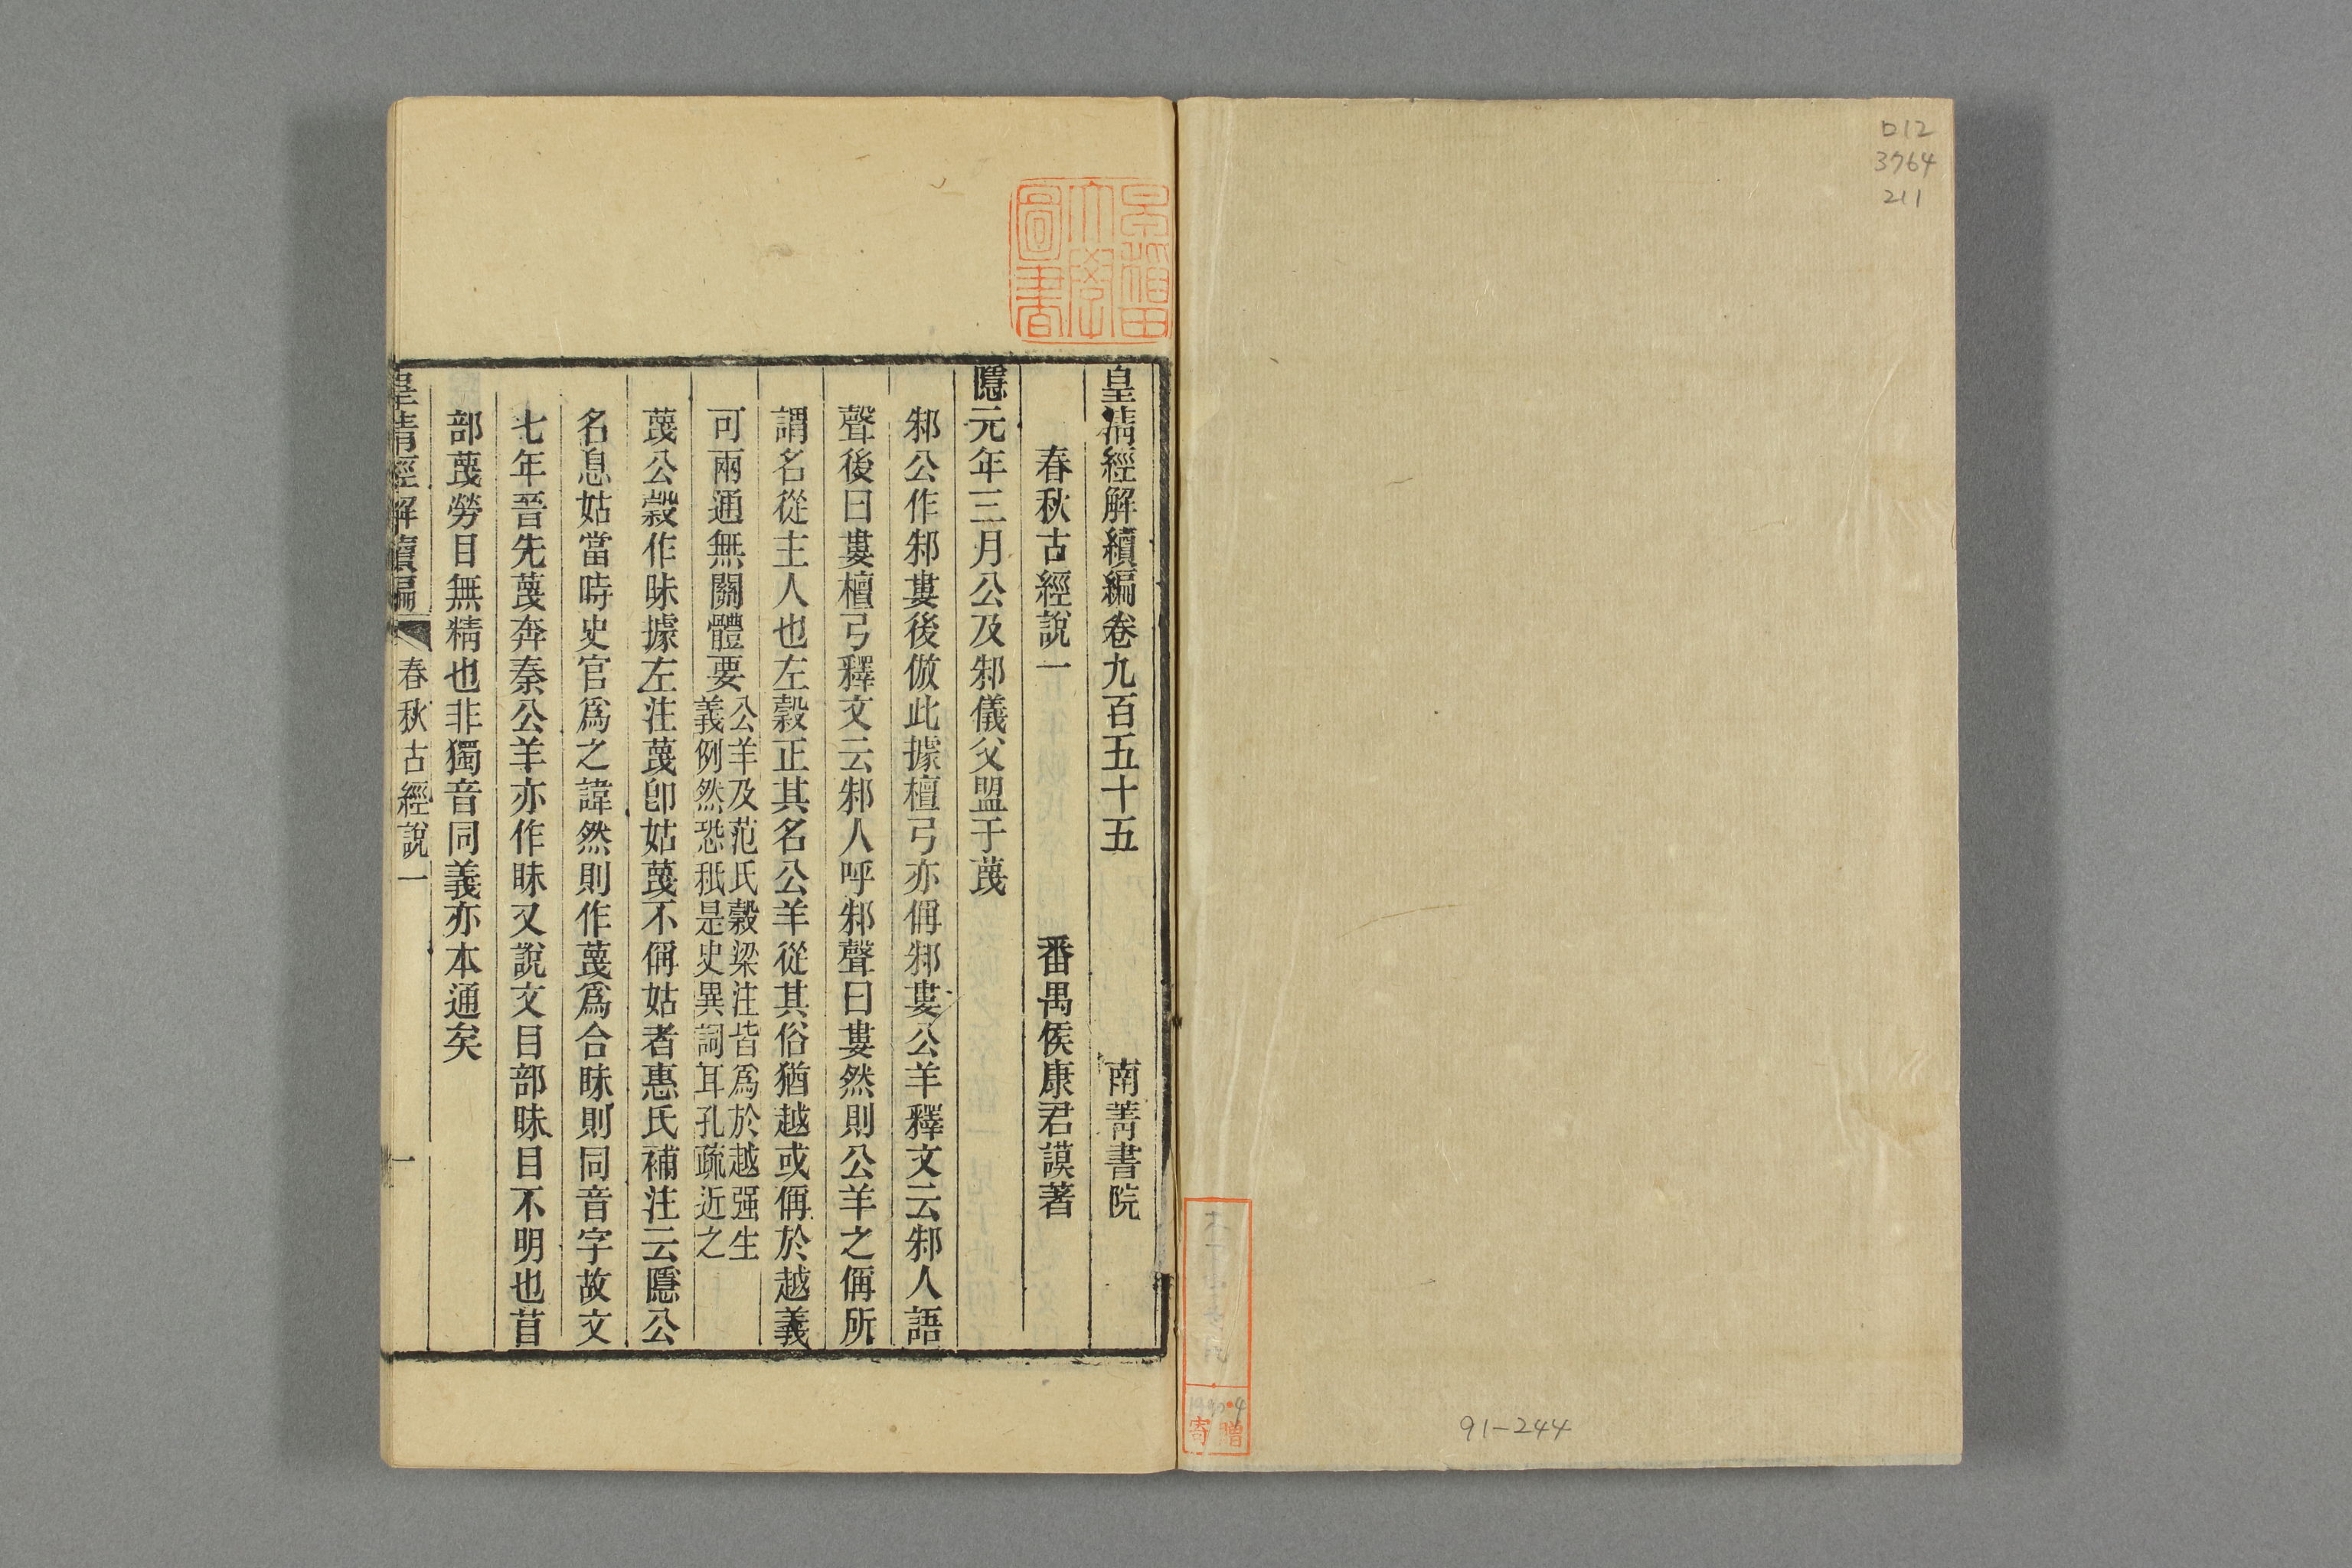 口12
3764
211
91-244
寄贈
早稲田
大學
圖書
皇清經解續編卷九百五十五 南菁書院
春秋古經說一 番禺侯康君謨著
隱元年三月公及邾儀父盟于蔑
邾公作邾婁後倣此據檀弓亦偁邾婁公羊釋文云邾人語
聲後曰婁檀弓釋文云邾人呼邾聲曰婁然則公羊之偁所
謂名從主人也左穀正其名公羊從其俗猶越或偁於越義
可兩通無關體要公羊及范氏穀梁注皆爲於越强生
義例然恐秪是史異詞耳孔疏近之
蔑公穀作昧據左注蔑卽姑蔑不偁姑者惠氏補注云隱公
名息姑當時史官爲之諱然則作蔑爲合眛則同音字故文
七年晉先蔑奔秦公羊亦作眛又說文目部眛目不明也苜
部蔑勞目無精也非獨音同義亦本通矣
皇清經解續編 春秋古經說一 一